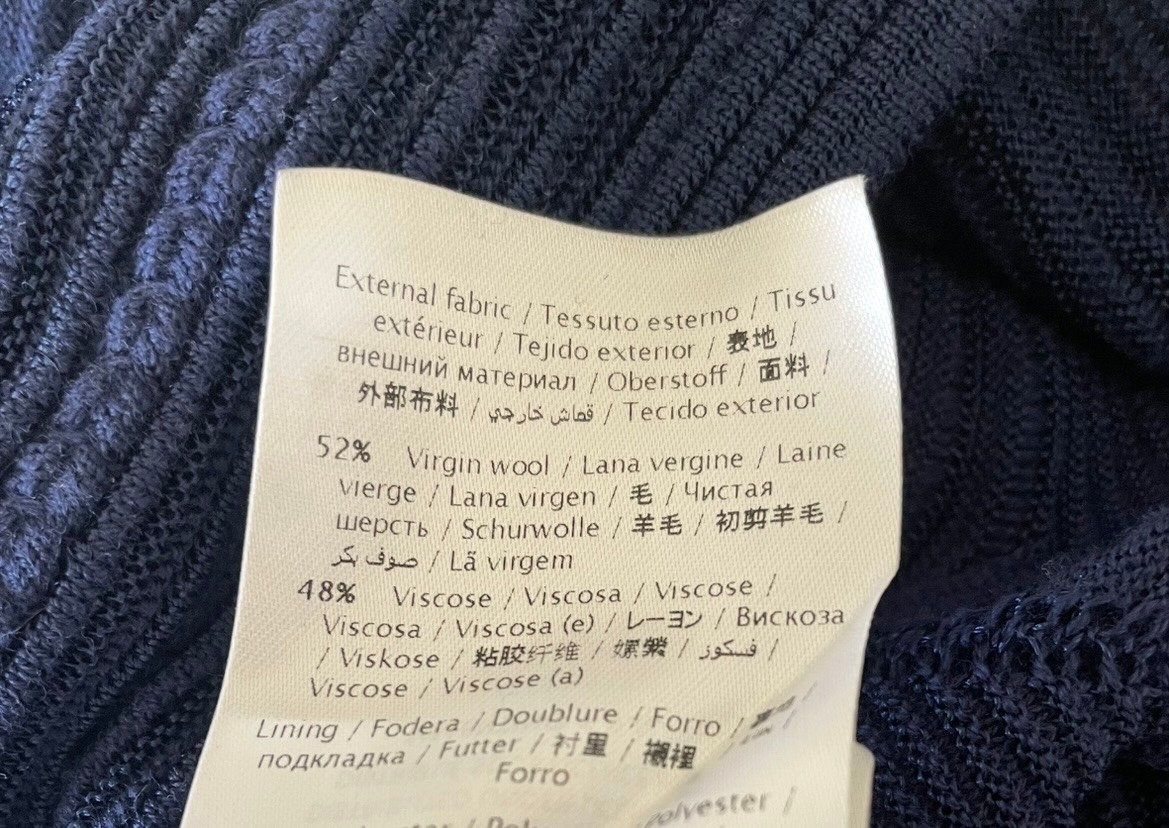 External fabric / Tessuto esterno / Tissu
extérieur / Tejido exterior / 表地 /
внешний материал / Oberstoff / 面料 /
外部布料 / قماش خارجي / Tecido exterior
52% Virgin wool / Lana vergine / Laine
vierge / Lana virgen / 毛 / Чистая
шерсть / Schurwolle / 羊毛 / 初剪羊毛 /
صوف بكر / Lã virgem
48% Viscose / Viscosa / Viscose /
Viscosa / Viscosa (e) / レーヨン / Вискоза
/ Viskose / 粘胶纤维 / 嫘縈 / فسكوز /
Viscose / Viscose (a)
Lining / Fodera / Doublure / Forro /
подкладка / Futter / 衬里 / 襯裡
Forro
polyester /